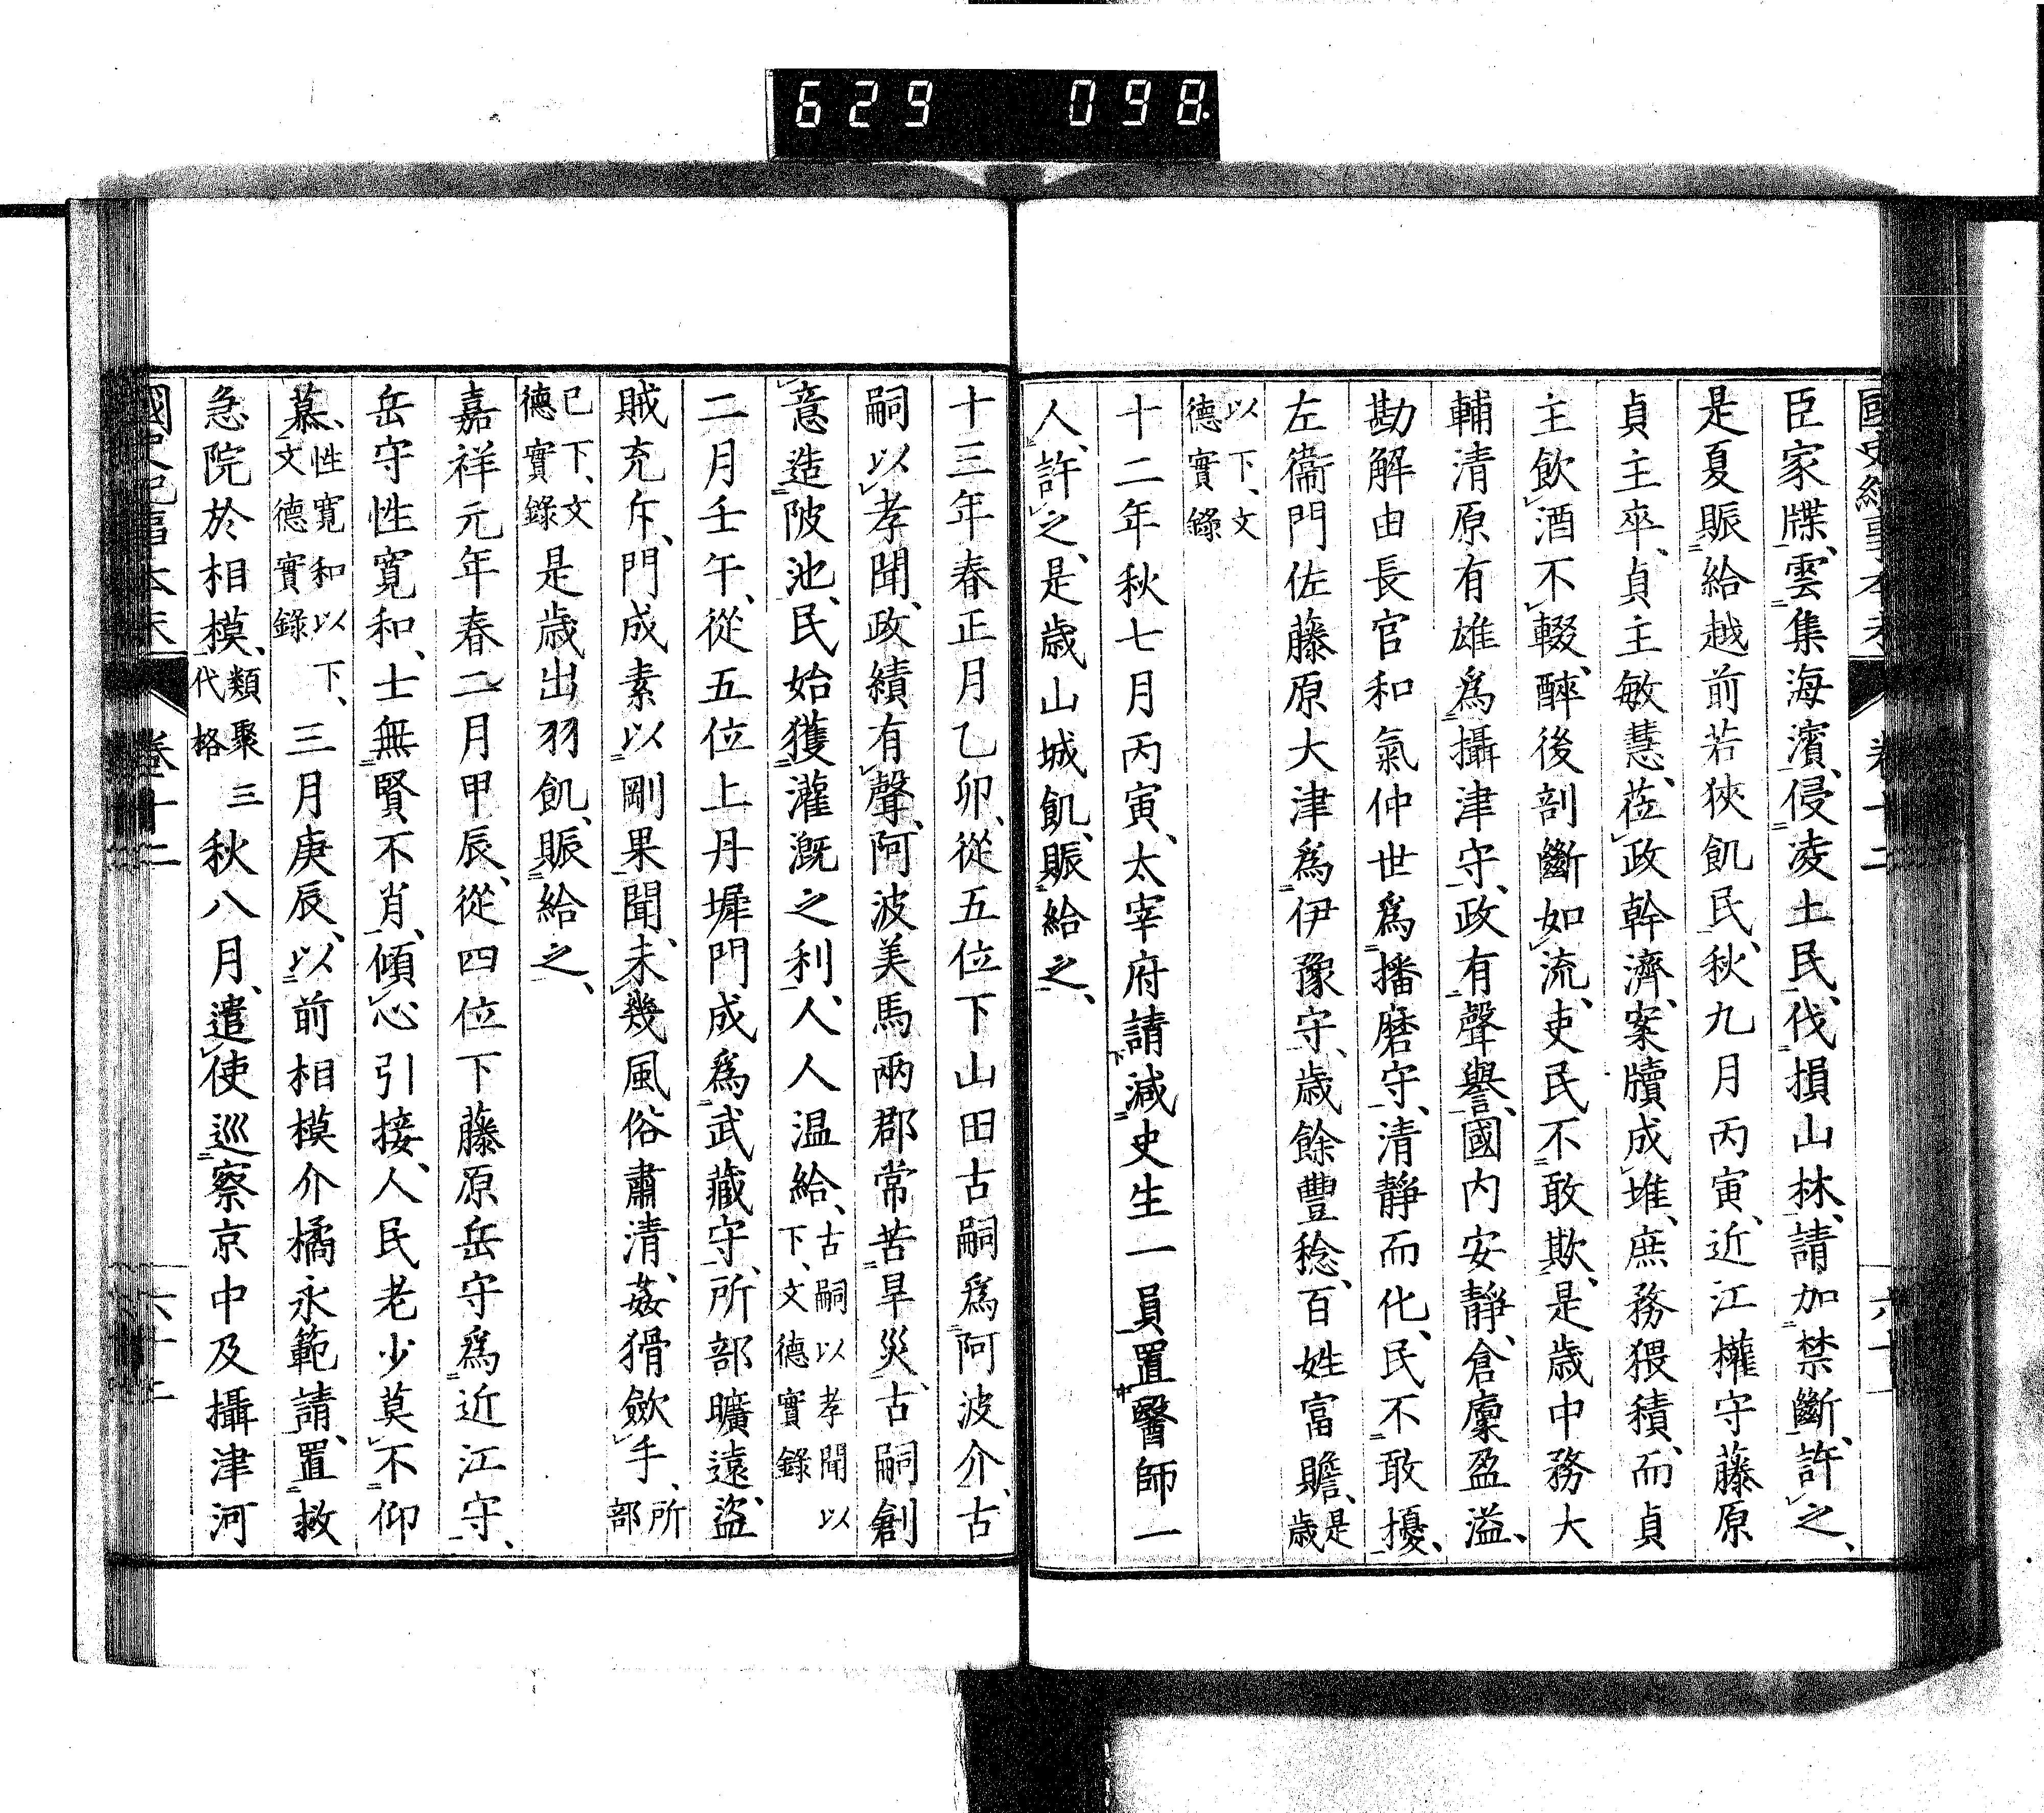 629 098
臣家牒、雲集海濱、侵凌土民、伐損山林、請加禁斷、許之、
是夏賑給越前若狹飢民、秋九月丙寅、近江權守藤原
貞主卒、貞主敏慧、莅政幹濟、案牘成堆、庶務猥積、而貞
主飲酒不輟、醉後剖斷如流、吏民不敢欺、是歲中務大
輔清原有雄爲攝津守、政有聲譽、國內安靜、倉廩盈溢、
勘解由長官和氣仲世爲播磨守、清靜而化、民不敢擾、
左衞門佐藤原大津爲伊豫守、歲餘豐稔、百姓富贍、是歲
以下、文德實錄
十二年秋七月丙寅、太宰府請減史生一員置醫師一
人、許之、是歲山城飢、賑給之、
十三年春正月乙卯、從五位下山田古嗣爲阿波介、古
嗣以孝聞、政績有聲、阿波美馬兩郡常苦旱災、古嗣創
意造陂池、民始獲灌漑之利、人人温給、古嗣以孝聞以下、文德實錄
二月壬午、從五位上丹墀門成爲武藏守、所部曠遠、盜
賊充斥、門成素以剛果聞、未幾風俗肅清、姦猾斂手、所部
已下、文德實錄是歲出羽飢、賑給之、
嘉祥元年春二月甲辰、從四位下藤原岳守爲近江守、
岳守性寬和、士無賢不肖、傾心引接、人民老少莫不仰
慕、性寬和以下、文德實錄三月庚辰、以前相模介橘永範請、置救
急院於相模、類聚三代格秋八月、遣使巡察京中及攝津河
國史紀事本末 卷十二